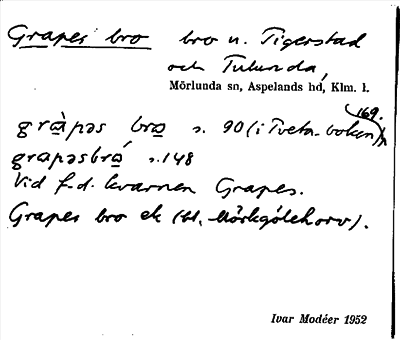 Grapes bro bro u. Tigerstad
och Tulunda,
Mörlunda sn, Aspelands hd, Klm. l.
169.
grà̱pəs bro̱ s. 90 (i Tveta-boken),
grapəsbró̱ s. 148
Vid f.d. kvarnen Grapes.
Grapes bro ek (bl. Mörkgölehorv).
Ivar Modéer 1952